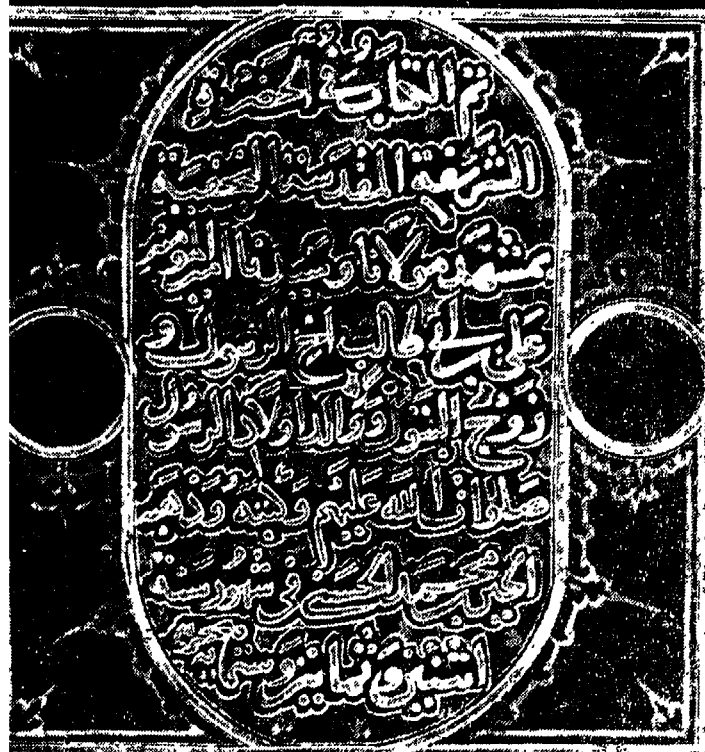 تم الكتاب في الحضرة
الشريفة المقدسة النجفية
بمشهد مولانا وسيدنا امير المومنين
علي بن ابي طالب اخ الرسول و
زوج البتول ووالد اولاد الرسول
صلوات الله عليهم وكتبه وذهبه
الحسين بن محمد الحسني في شهور سنة
اثنتين وثمانين وستمائة